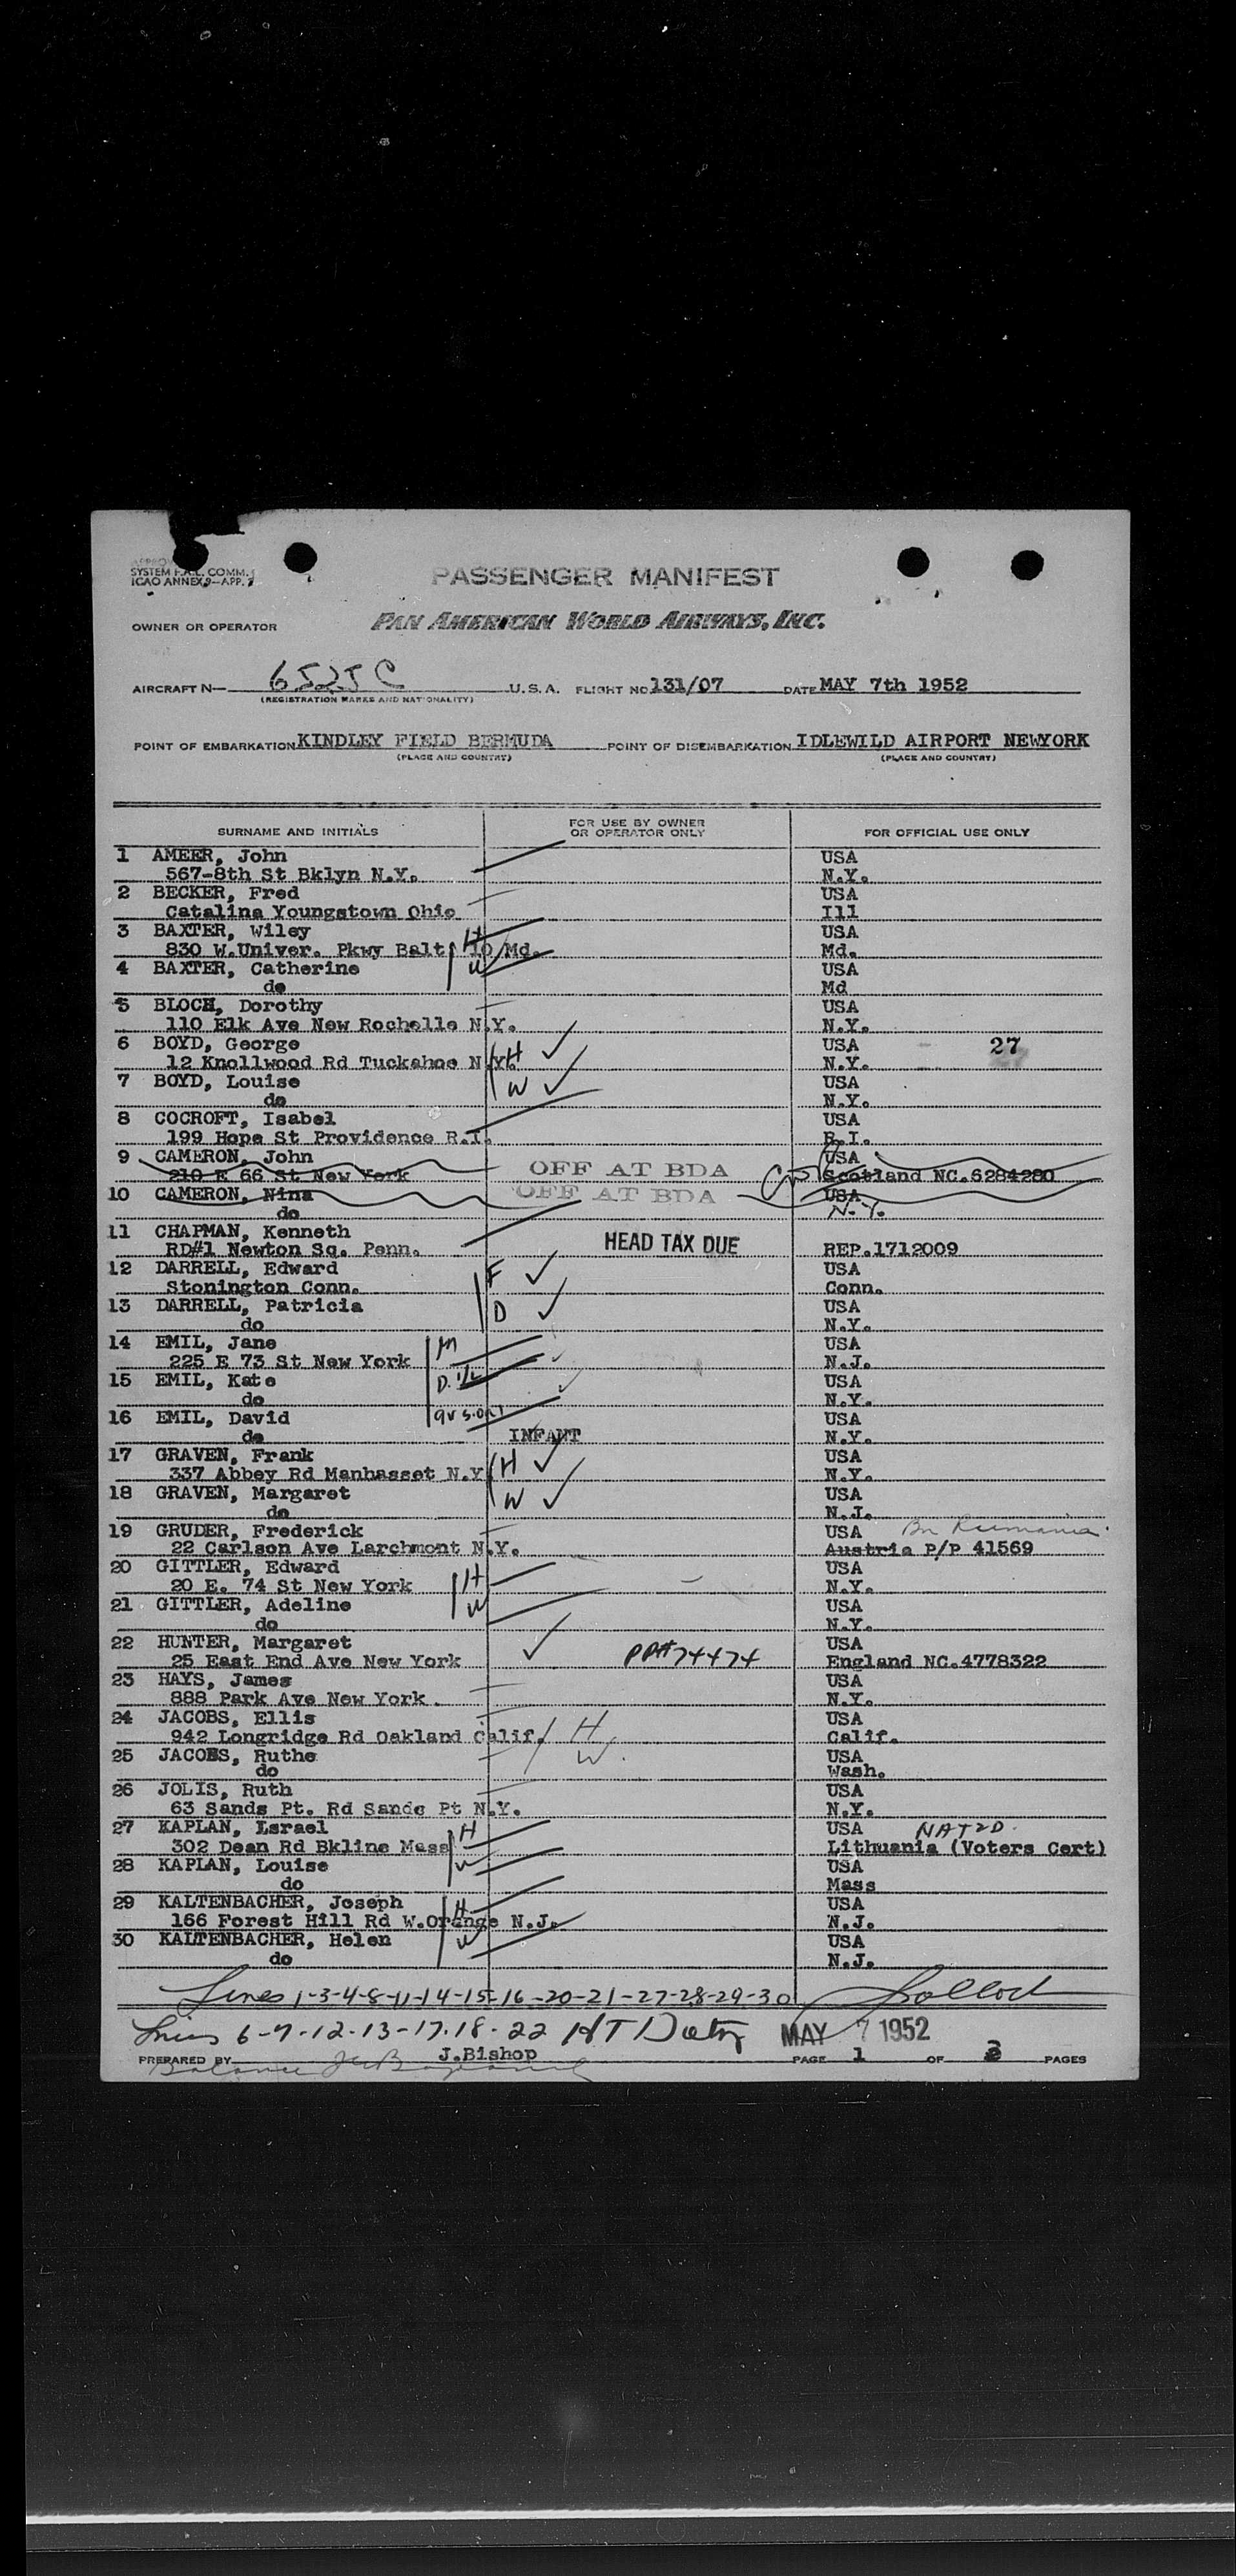 SYSTEM F.A.L. COMM.
ICAO ANNEX 9-APP. 
PASSENGER MANIFEST
OWNER OR OPERATOR PAN AMERICAN WORLD AIRWAYS, INC.
AIRCRAFT N- 6525C U.S.A. FLIGHT NO 131/07 DATE MAY 7th 1952
(REGISTRATION MARKS AND NATIONALITY)
POINT OF EMBARKATION KINDLEY FIELD BERMUDA POINT OF DISEMBARKATION IDLEWILD AIRPORT NEWYORK
(PLACE AND COUNTRY) (PLACE AND COUNTRY)
SURNAME AND INITIALS FOR USE BY OWNER OR OPERATOR ONLY FOR OFFICIAL USE ONLY
1 AMEER, John USA
567-8th St Bklyn N.Y. N.Y.
2 BECKER, Fred USA
Catalina Youngstown Ohio Ill
3 BAXTER, Wiley H USA
830 W.Univer. Pkwy Balt. 10 Md. Md.
4 BAXTER, Catherine W USA
do Md
5 BLOCH, Dorothy USA
110 Elk Ave New Rochelle N.Y. N.Y.
6 BOYD, George H USA 27
12 Knollwood Rd Tuckahoe N.Y. N.Y.
7 BOYD, Louise W USA
do N.Y.
8 COCROFT, Isabel USA
199 Hope St Providence R.I. R.I.
9 CAMERON, John OFF AT BDA USA
210 E 66 St New York Scotland NC.6284280
10 CAMERON, Nina OFF AT BDA USA
do N.Y.
11 CHAPMAN, Kenneth HEAD TAX DUE
RD#1 Newton Sq. Penn. REP.1712009
12 DARRELL, Edward F USA
Stonington Conn. Conn.
13 DARRELL, Patricia D USA
do N.Y.
14 EMIL, Jane M USA
225 E 73 St New York N.J.
15 EMIL, Kate USA
do N.Y.
16 EMIL, David USA
do INFANT N.Y.
17 GRAVEN, Frank H USA
337 Abbey Rd Manhasset N.Y. N.Y.
18 GRAVEN, Margaret W USA
do N.J.
19 GRUDER, Frederick USA Bn Rumania.
22 Carlson Ave Larchmont N.Y. Austria P/P 41569
20 GITTLER, Edward H USA
20 E. 74 St New York N.Y.
21 GITTLER, Adeline W USA
do N.Y.
22 HUNTER, Margaret USA
25 East End Ave New York PP#74474 England NC.4778322
23 HAYS, James USA
888 Park Ave New York N.Y.
24 JACOBS, Ellis H USA
942 Longridge Rd Oakland Calif. Calif.
25 JACOBS, Ruthe W. USA
do Wash.
26 JOLIS, Ruth USA
63 Sands Pt. Rd Sands Pt N.Y. N.Y.
27 KAPLAN, Israel H USA NATZD.
302 Dean Rd Bkline Mass Lithuania (Voters Cert)
28 KAPLAN, Louise W USA
do Mass
29 KALTENBACHER, Joseph H USA
166 Forest Hill Rd W.Orange N.J. N.J.
30 KALTENBACHER, Helen W USA
do N.J.
Lines 1-3-4-8-11-14-15-16-20-21-27-28-29-30
Lines 6-7-12-13-17-18-22 MAY 7 1952
PREPARED BY J.Bishop PAGE 1 OF PAGES
Balance